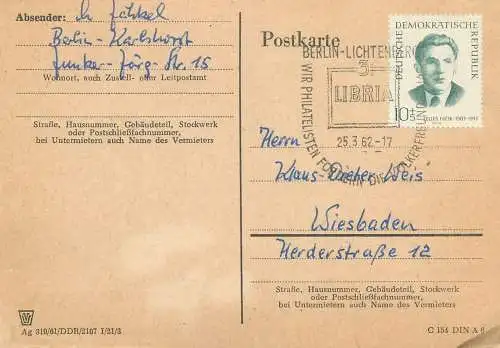 Absender:
Berlin-Karlshorst
Junker-Jörg-Str. 15
Wohnort, auch Zustell- oder Leitpostamt
Straße, Hausnummer, Gebäudeteil, Stockwerk
oder Postschließfachnummer,
bei Untermietern auch Name des Vermieters
Ag 310/61/DDR/2107 I/21/3
Postkarte
BERLIN-LICHTENBERG
3.
LIBRIA
25.3.62.-17
WIR PHILATELISTEN FÖRDERN DIE VÖLKERFREUNDSCHAFT
DEUTSCHE DEMOKRATISCHE REPUBLIK
10+5
Herrn
Klaus-Dieter Weis
Wiesbaden
Herderstraße 12
Straße, Hausnummer, Gebäudeteil, Stockwerk
oder Postschließfachnummer,
bei Untermietern auch Name des Vermieters
C 154 DIN A 6